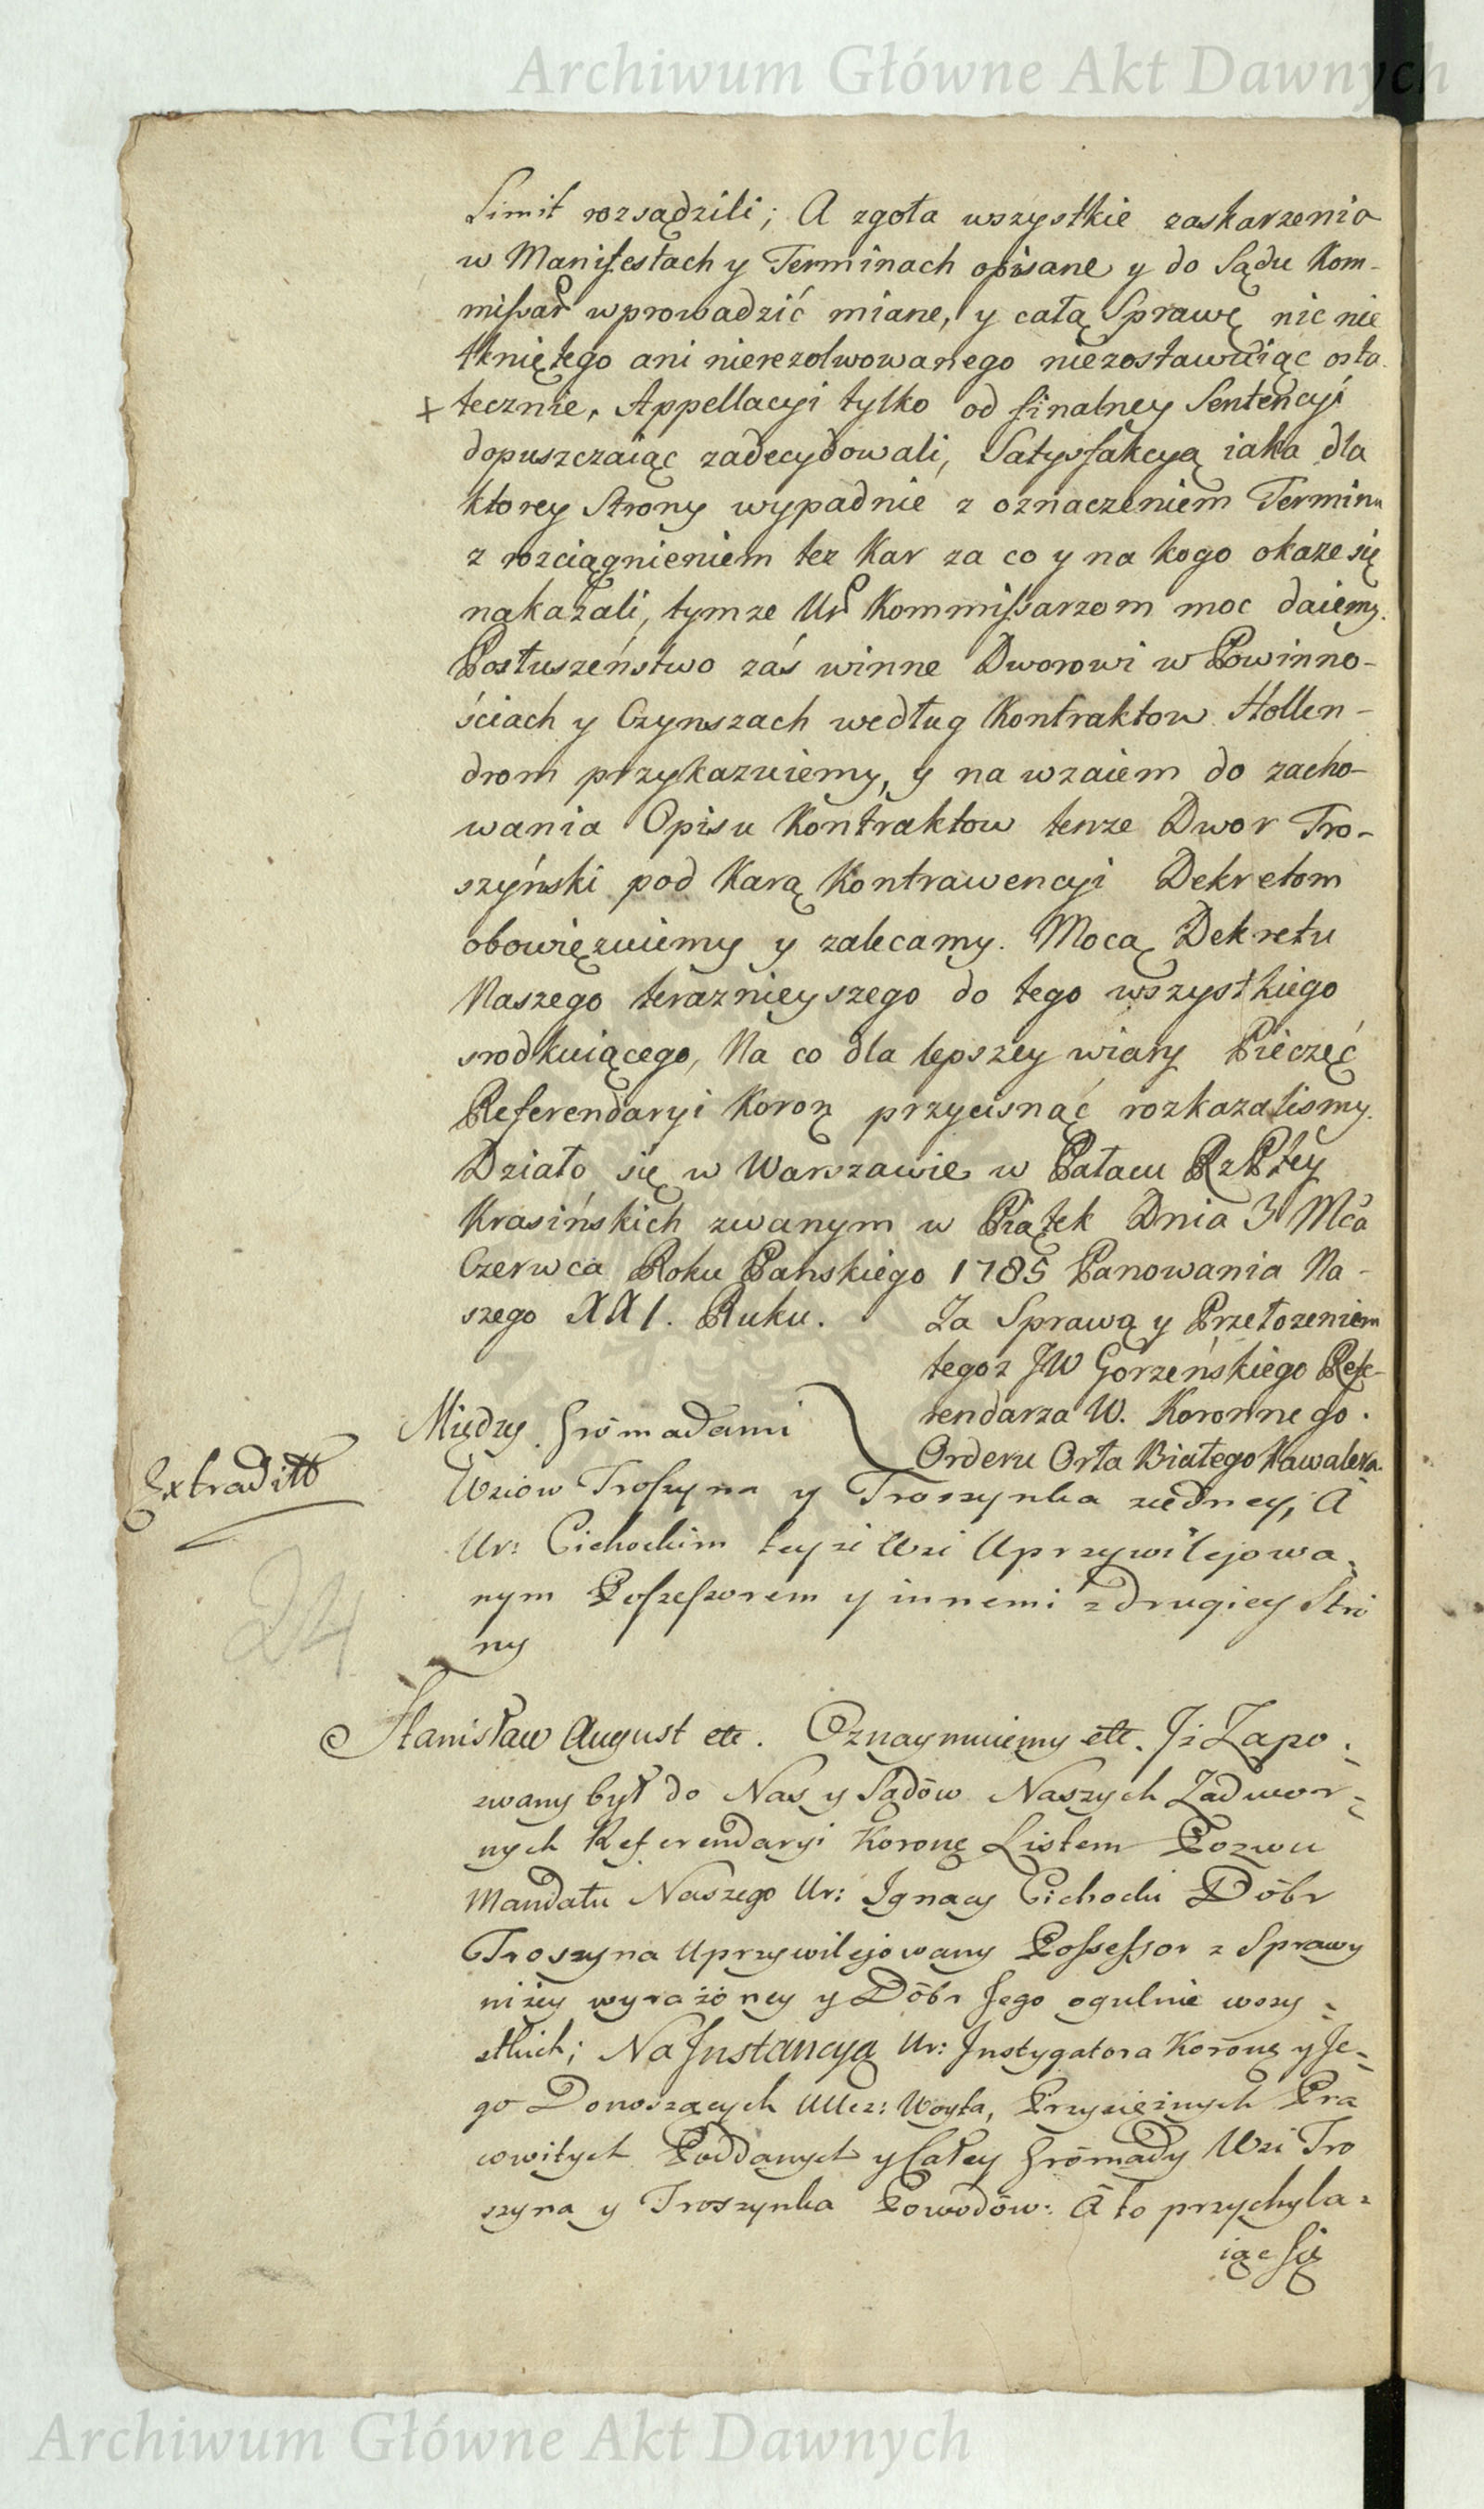 Archiwum Główne Akt Dawnych
Limit rozsądzili; A zgoła wszystkie zaskarzenia
w Manifestach y Terminach opisane y do Sądu Kom-
missar wprowadzić miane, y całą Sprawę nic nie
tkniętego ani nierezolwowanego niezostawuiąc osta-
+ tecznie, Appellacyi tylko od finalney Sentencyi
dopuszczaiąc zadecydowali, Satysfakcyą iaka dla
ktorey Strony wypadnie z oznaczeniem Terminu
z rozciągnieniem tez Kar za co y na kogo okaze się
nakazali, tymze Ur Kommissarzom moc daiemy.
Posłuszeństwo zaś winne Dworowi w Powinno-
ściach y Czynszach według Kontraktow Hollen-
drom przykazuiemy, y na wzaiem do zacho-
wania Opisu Kontraktow tenze Dwor Tro-
szyński pod Karą Kontrawencyi Dekretom
obowięzuiemy y zalecamy. Mocą Dekretu
Naszego teraznieyszego do tego wszystkiego
srodkuiącego, Na co dla lepszey wiary Pieczęć
Referendaryi Koron przycisnąć rozkazalismy.
Działo się w Warszawie w Pałacu RzPltey
Krasińskich zwanym w Piątek Dnia 3 Mca
Czerwca Roku Panskiego 1785 Panowania Na-
szego XXI. Ruku.
Za Sprawą y Przełozeniem
tegoz JW Gorzeńskiego Refe-
rendarza W. Koronnego.
Orderu Orła Białego Kawalera.
Extraditt
Między Gromadami
Wsiow Troszyna y Troszynka ziedney, A
Ur: Cichockim teyże Wsi Uprzywilejowa-
nym Possessorem y innemi z drugiey Stro
ny
24
Stanisław August etc. Oznaymuiemy etc. Iż Zapo-
zwany był do Nas y Sądów Naszych Zadwor-
nych Referendaryi Koronę Listem Pozwu
Mandatu Naszego Ur: Ignacy Cichocki Dóbr
Troszyna Uprzywilejowany Possessor z Sprawy
niżey wyrażóney y Dóbr Jego ogulnie wszy-
stkich; Na Instancyą Ur: Instygatora Koronę y Je-
go Donoszących Ucz: Woyta, Przysiężnych Pra
wowitych Poddanych y Całey Grómady Wsi Tro
szyna y Troszynka Powodów: A to przychyla-
iąc Się
Archiwum Główne Akt Dawnych